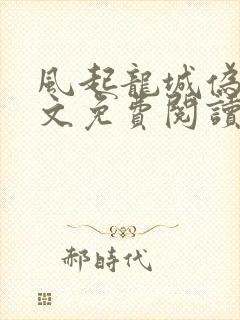 風起龍城偽
文免費閱讀
郝時代